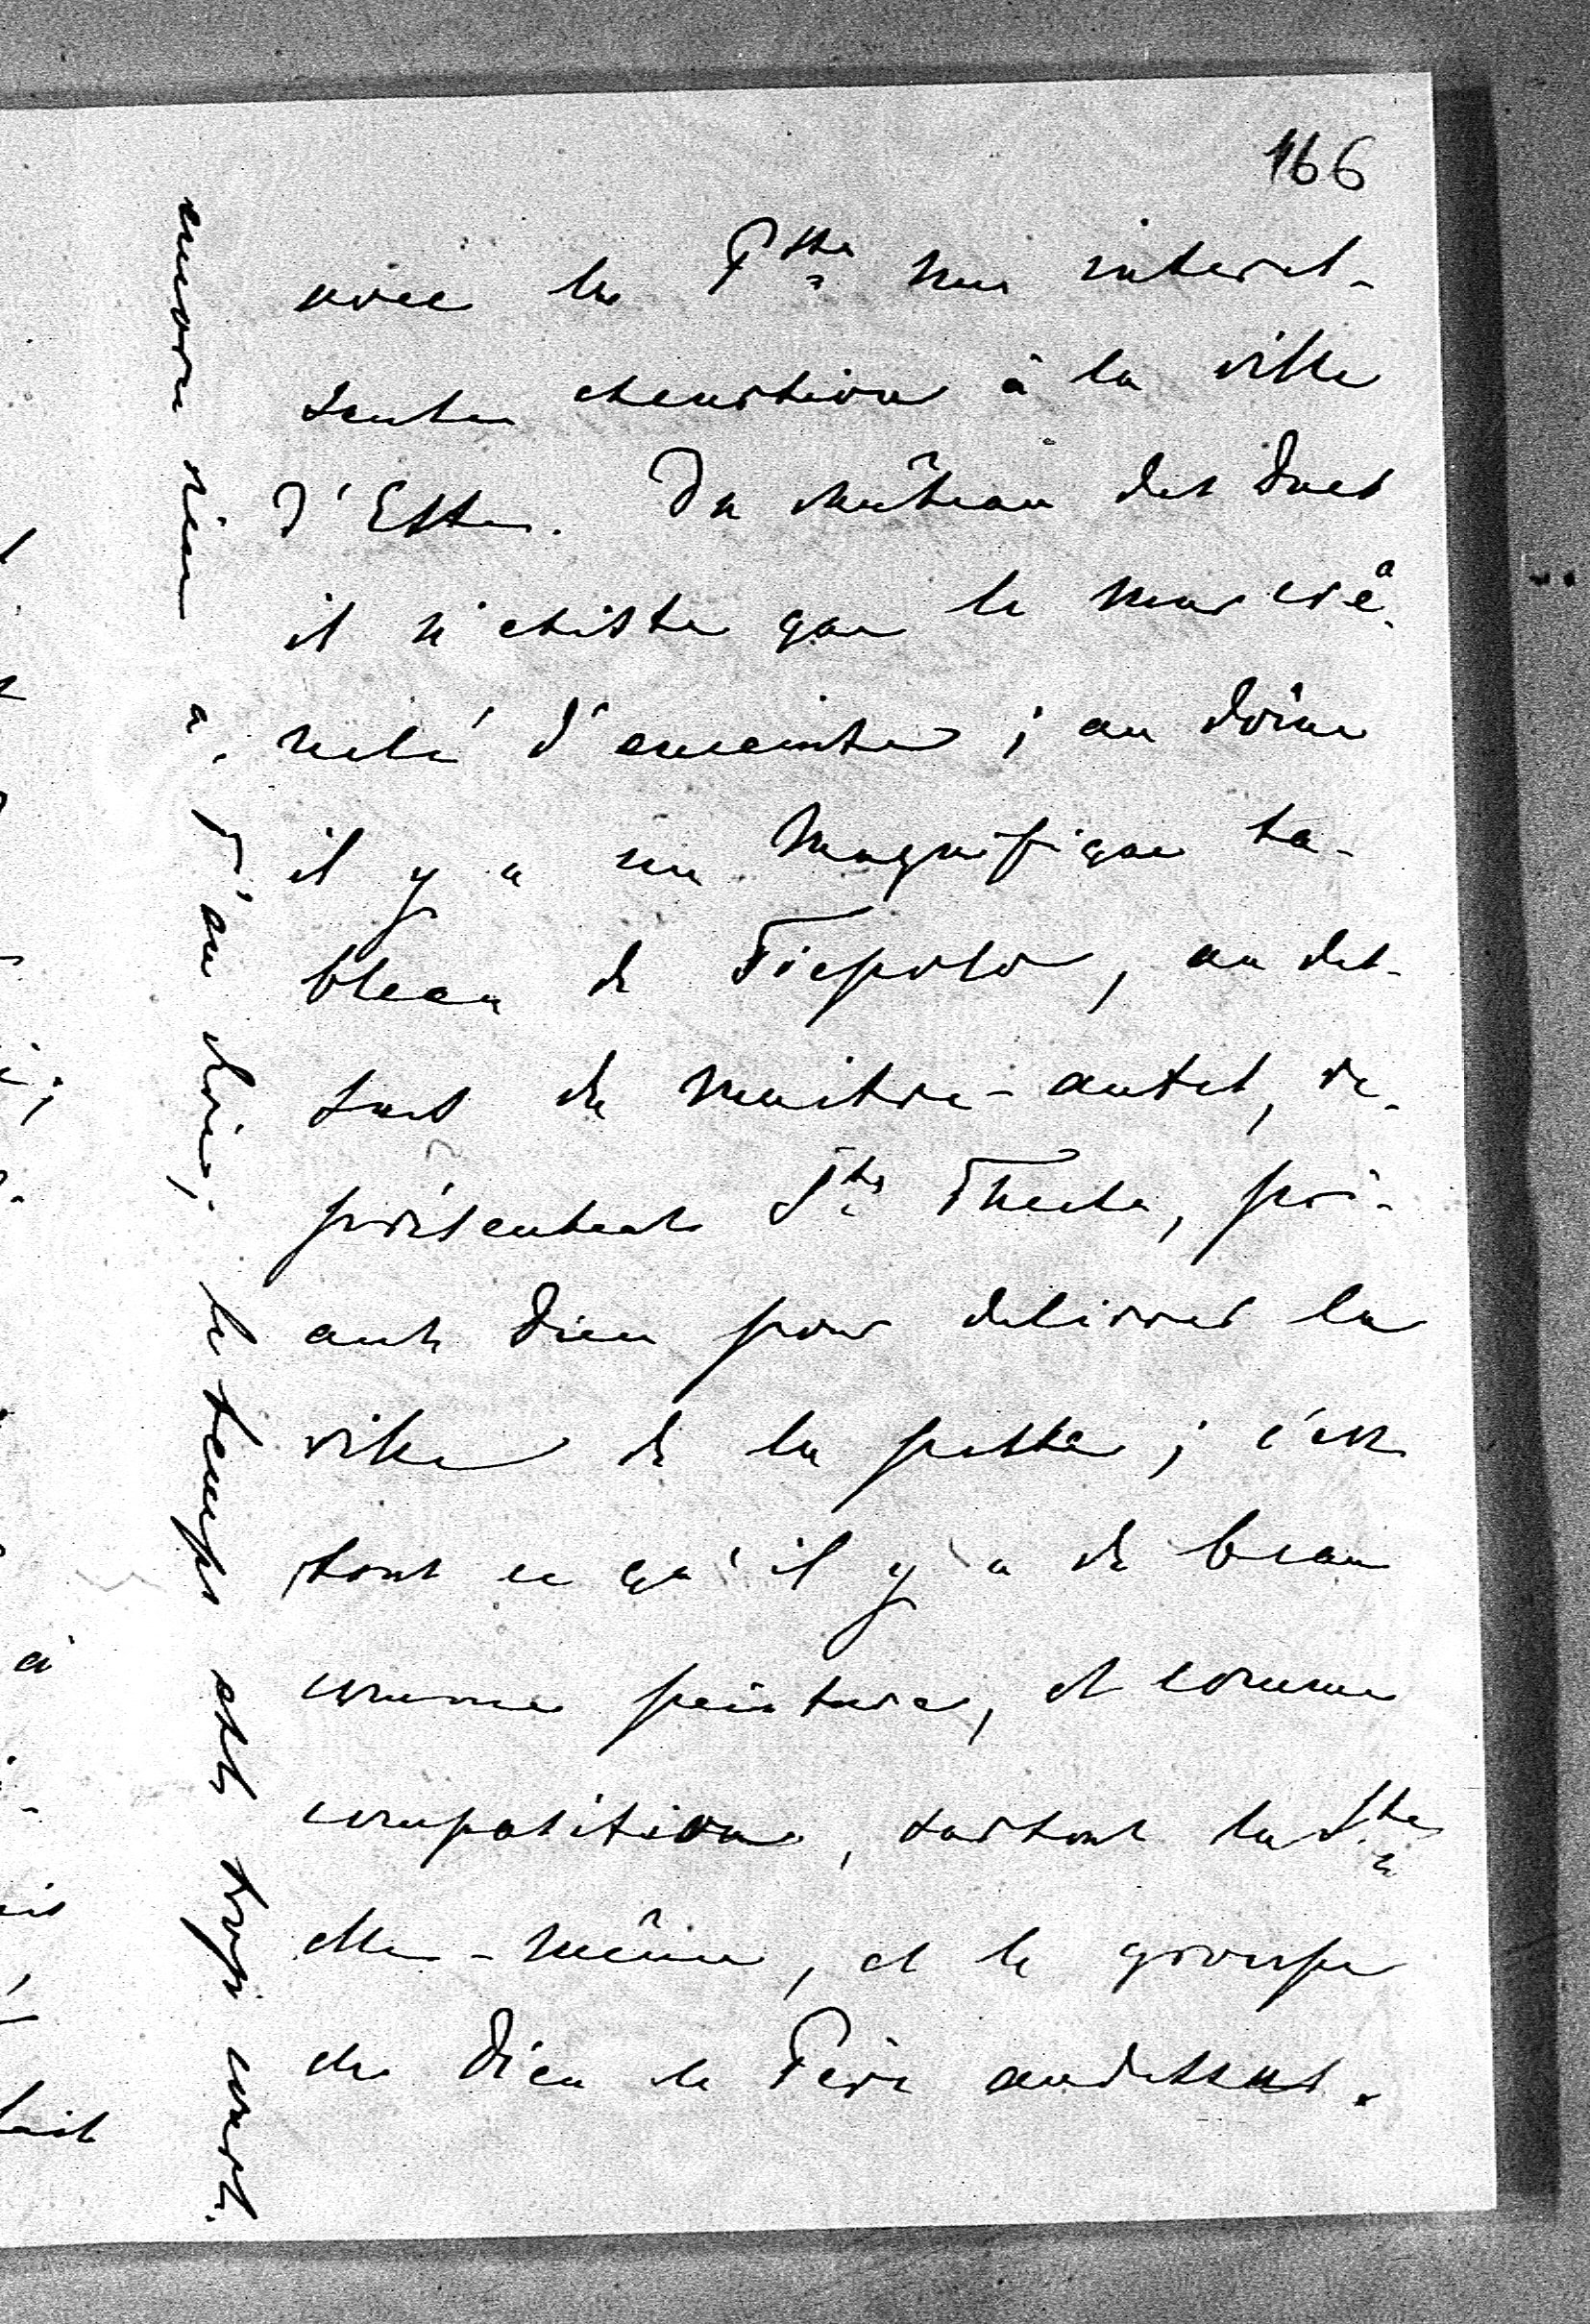 166
avec la Psse une interes-
sante excursion à la ville
d'Este. Du château des ducs
il n'existe que le mur cré-
nelé d'enceinte; au dôme
il y a un magnifique ta-
bleau de Tiepolo, au des-
sus du maitre-autel, re-
présentant Ste Thecla, pri-
ant Dieu pour delivrer la
ville de la peste; c'est
tout ce qu'il y a de beau
comme peinture, et comme
composition, surtout la Ste
elle-même, et le groupe
de Dieu le Père audessus.
encore rien à d'ici; le temps est trop court.